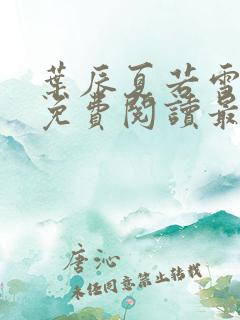 葉辰夏若雪
免費閱讀最
唐沁
未经同意禁止转载